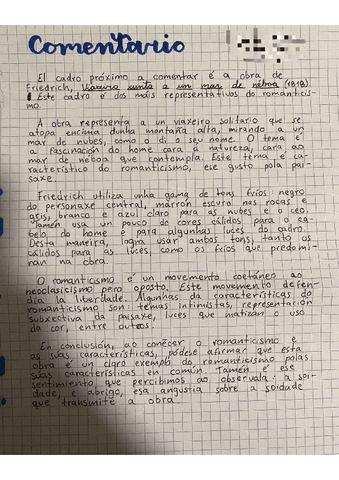 Comentario
El cadro próximo a comentar é a obra de
Friedrich, Viaxeiro xunto a un mar de néboa (1818).
Este cadro é dos máis representativos do romanticis-
mo.
A obra representa a un viaxeiro solitario que se
atopa encima dunha montaña alta, mirando a un
mar de nubes, como o di o seu nome. O tema é
a fascinación do home cara a natureza, cara ao
mar de néboa que contempla. Este tema é ca-
racterístico do romanticismo, ese gusto pola pai-
saxe.
Friedrich utiliza unha gama de tons fríos: negro
do personaxe central, marrón escuro nas rocas e
gris, branco e azul claro para as nubes e o ceo.
Tamén usa un pouco de cores cálidos para o ca-
belo do home e para algunhas luces do cadro.
Desta maneira, logra usar ambos tons, tanto os
cálidos para as luces, como os fríos que predomi-
nan na obra.
O romanticismo é un movemento coetáneo ao
neoclasicismo pero oposto. Este movemento defen-
día la liberdade. Algunhas da características do
romanticismo son: temas intimistas, representación
subxectiva da paisaxe, luces que matizan o uso
da cor, entre outros.
En conclusión, ao coñecer o romanticismo e
as súas características, pódese afirmar que esta
obra é un claro exemplo do romanticismo polas
súas características en común. Tamén é ese
sentimento, que percibimos ao observala: a soi-
dade, e abrigo, esa angustia sobre a soidade
que transmite a obra.